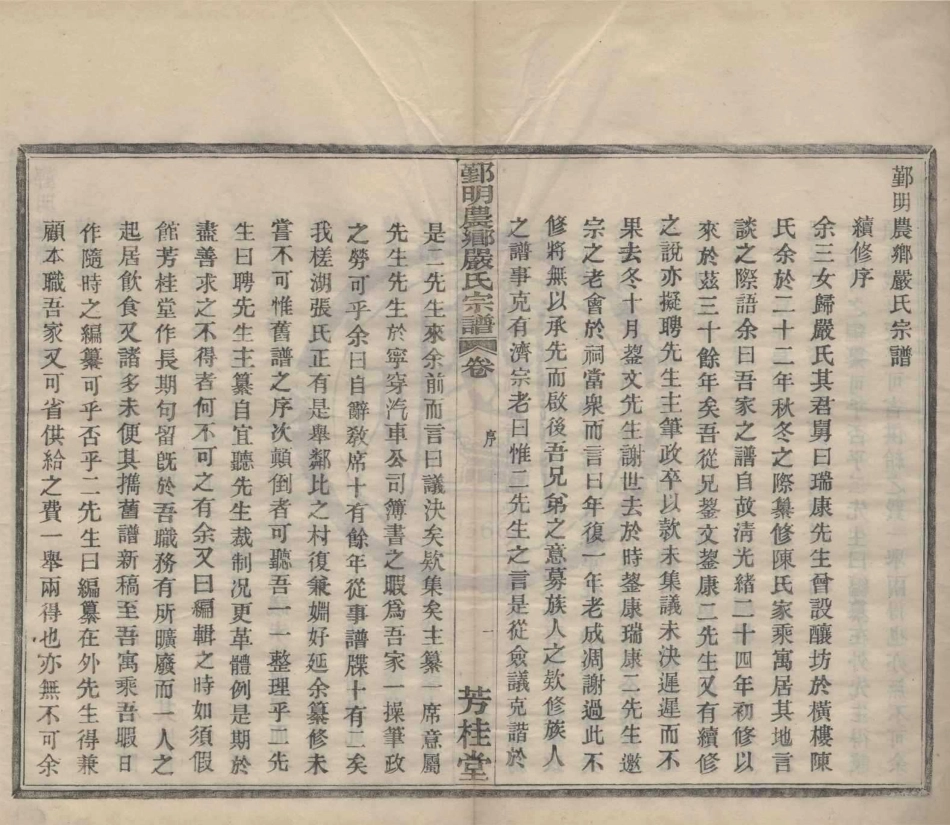 鄞明農鄉嚴氏宗譜
續修序
余三女歸嚴氏其君舅曰瑞康先生曾設釀坊於橫樓陳
氏余於二十二年秋冬之際纂修陳氏家乘寓居其地言
談之際語余曰吾家之譜自故淸光緒二十四年初修以
來於茲三十餘年矣吾從兄鋆文鋆康二先生又有續修
之說亦擬聘先生主筆政卒以款未集議未決遲遲而不
果去冬十月鋆文先生謝世去於時鋆康瑞康二先生邀
宗之老會於祠當衆而言曰年復一年老成凋謝過此不
修將無以承先而啟後吾兄弟之意募族人之欵修族人
之譜事克有濟宗老曰惟二先生之言是從僉議克諧於
鄞明農鄉嚴氏宗譜
卷
序
一
芳桂堂
是二先生來余前而言曰議決矣欵集矣主纂一席意屬
先生先生於寧穿汽車公司簿書之暇爲吾家一操筆政
之勞可乎余曰自辭敎席十有餘年從事譜牒十有二矣
我槎湖張氏正有是舉鄰比之村復兼婣好延余纂修未
嘗不可惟舊譜之序次顚倒者可聽吾一一整理乎二先
生曰聘先生主纂自宜聽先生裁制况更革體例是期於
盡善求之不得者何不可之有余又曰編輯之時如須假
館芳桂堂作長期句留旣於吾職務有所曠廢而一人之
起居飮食又諸多未便其擕舊譜新稿至吾寓乘吾暇日
作隨時之編纂可乎否乎二先生曰編纂在外先生得兼
顧本職吾家又可省供給之費一舉兩得也亦無不可余